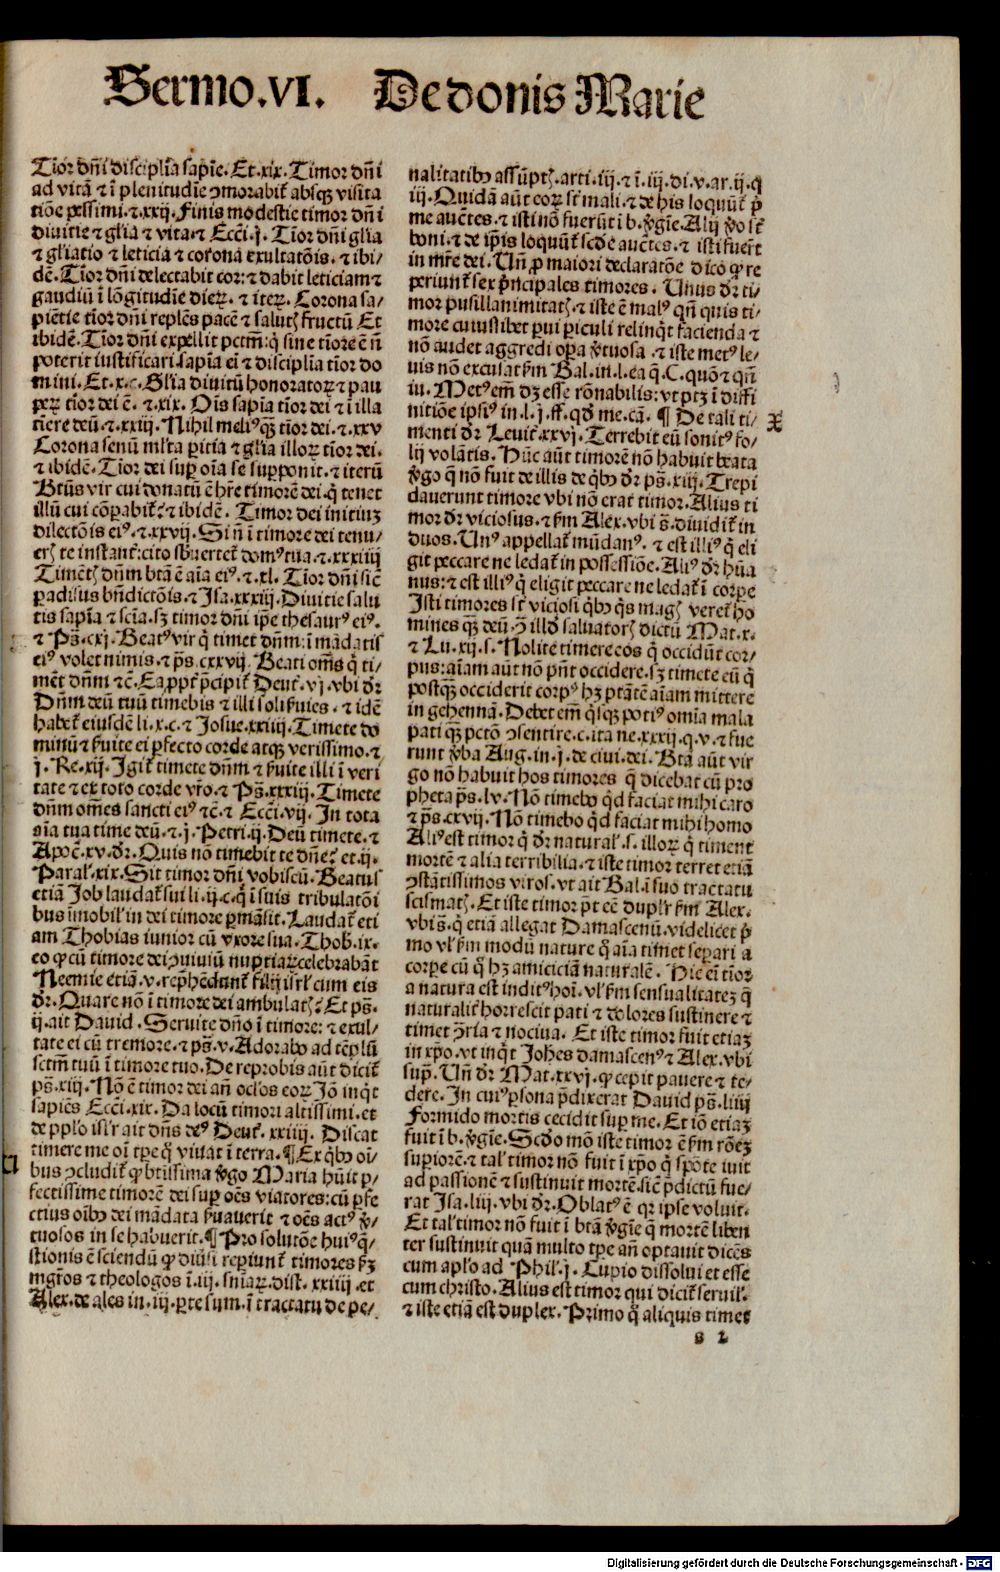 Sermo.VI. De donis Marie
Tior dñi disciplīa sapīe. Et.xix. Timor dñi
ad vitã ⁊ ī plenitudīe ꝯmorabit̃ absqꝫ visita
tiõe pessimi.⁊.xxij. Finis modestie timor dñi
diuitie ⁊ gl̃ia ⁊ vita.⁊ Eccĩ.j. Tior dñi gl̃ia
⁊ gl̃iatio ⁊ leticia ⁊ corona exultatõis.⁊ ibi/
dē. Tior dñi delectabit cor:⁊ dabit leticiam ⁊
gaudiũ ī lõgitudīe dieꝝ. ⁊ īteꝝ. Corona sa/
piētie tīor dñi replēs pacē ⁊ salutꝭ fructũ Et
ibidē. Tior dñi expellit pctm̃:q̇ sine tiore ē ñ
poterit iustificari.sapīa eī ⁊ disciplīa tior do
mini. Et.x.c. Gl̃ia diuitũ honoratoꝝ ⁊ pau
peꝝ tior dei ē. ⁊.xix. Oīs sapīa tior dei ⁊ ī illa
tiere deũ.⁊.xxiij. Nihil meliꝰqꝫ tior dei.⁊.xxv
Corona senũ ml̃ta pitia ⁊ gl̃ia illoꝝ tior dei.
⁊ ibidē. Tior dei suꝑ oīa se suꝑponit.⁊ iterũ
Bt̃us vir cui donatũ ē hr̃e timorē dei.q̇ tenet
illũ cui cõꝑabit̃:⁊ ibidē. Timor dei initiuꝫ
dilectõis eiꝰ.⁊.xxvij. Si ñ ī timore dei tenu/
erꝭ te instant̃:cito sbuertet̃ domꝰ tua.⁊.xxxiiij
Timētꝭ dñm bt̃a ē aīa eiꝰ.⁊.xl. Tior dñi sic̃
ꝑadisus bñdictõis.⁊ Isa.xxxiij. Diuitie salu
tis sapīa ⁊ scīa.sꝫ timor dñi ip̃e thesaurꝰ eiꝰ.
⁊ Ps̃.cxj. Beatꝰ vir q̇ timet dñm:ī mãdatis
eiꝰ volet nimis.⁊ ps̃.cxxvij. Beati om̃s q̇ ti/
mēt dñm ⁊c̃. Ea ꝓpt̃ p̃cipit̃ Deut̃.vj.vbi dr̃
Dñm deũ tuũ timebis ⁊ illi soli ẜuies. ⁊ idē
habet̃ eiusdē li.x.c.⁊ Josue.xxiiij. Timete do
minũ ⁊ ẜuite ei ꝑfecto corde atqꝫ verissimo.⁊
j. Re.xij. Igit̃ timete dñm ⁊ ẜuite illi ī veri
tate ⁊ ex toto corde vr̃o.⁊ Ps̃.xxxiij. Timete
dñm om̃es sancti eiꝰ ⁊c̃.⁊ Eccĩ.vij. In tota
aīa tua time deũ.⁊.j. Petri.ij. Deũ timete.⁊
Apoc̃.xv.dr̃. Quis nõ timebit te dñe? et.ij.
Paral̃.xix. Sit timor dñi vobiscũ. Beatus
etiã Job laudat̃ sui li.ij.c.q̇ ī suis tribulatõi
bus imobil̃ in dei timore ꝑmãsit. Laudat̃ eti
am Thobias iunior cũ vxore sua. Thob.ix.
eo ꝙ cũ timore dei ꝯuiuiũ nuptiaꝝ celebrabãt
Neemie etiã.v.rep̃hēdunt̃ filij isrl̃ cum eis
dr̃. Quare nõ ī timore dei ambulatꝭ? Et ps̃.
ij.ait Dauid. Seruite dño ī timore: ⁊ exul/
tate ei cũ tremore.⁊ ps̃.v. Adorabo ad tēplũ
sctm̃ tuũ ī timore tuo. De reprobis aũt dicit̃
ps̃.xiij. Nõ ē timor dei añ oc̃los eoꝝ Jõ inq̇t
sapiēs Eccĩ.xix. Da locũ timori altissimi.et
de pp̃lo isl̃r ait dñs deꝰ Deut̃.xxiiij. Discat
timere me oī tp̃e q̇ viuat ī terra.¶ Ex q̇bꝰ oī/
bus ꝯcludit̃ ꝙ bt̃issima v̓go Maria hũit ꝑ/
fectissime timorē dei suꝑ oēs viatores:cũ ꝑfe
ctius oībꝰ dei mãdata ẜuauerit ⁊ oēs actꝰ v̓/
tuosos in se habuerit.¶ Pro solutõe huiꝰ q̃/
stionis ē sciendũ ꝙ diũsi reꝑiunt̃ timores ẜꝫ
mgr̃os ⁊ theologos ī.iij.sniaꝝ.dist̃.xxiiij.et
Alex.de ales in.iij.ꝑte sum.ī tractatu de pe/
nalitatibꝰ assũptꝭ.arti.iij.⁊ ī.iij.di.v.ar.ij.q
iij. Quidã aũt eoꝝ st̃ mali.⁊ de his loquunt̃ p̃
me auc̃tes.⁊ isti nõ fuerũt ī b.v̓gīe. Alij v̓o st̃
boni.⁊ de ip̃is loquunt̃ scd̃e auc̃tes.⁊ isti fuer̃t
in mr̃e dei. Uñ ꝓ maiori declaratõe dico ꝙ re
periunt̃ sex p̓ncipales timores. Unus dr̃ ti/
mor pusillanimitatꝭ.⁊ iste ē malꝰ qñ quis ti/
more cuiuslibet pui ꝑiculi relinq̇t facienda ⁊
nõ audet aggredi oꝑa v̓tuosa.⁊ iste metꝰ le/
uis nõ excusat ẜm Bal.in.l.ea q̃.C.quõ ⁊ qñ
iu. Metꝰ em̃ dꝫ esse rõnabilis:vt ptꝫ ī diffi
nitiõe ipsiꝰ in.l.j.ff.qd̓ me.cã. ¶ De tali ti/
menti dr̃ Leuit̃.xxvj. Terrebit eũ sonitꝰ fo/
lij volãtis. Hũc aũt timorē nõ habuit beata
v̓go q̃ nõ fuit de illis de q̇bꝰ dr̃ ps̃.xiij. Trepi
dauerunt timore vbi nõ erat timor. Alius ti
mor dr̃ viciosus.⁊ ẜm Alex.vbi s̃.diuidit̃ in
duos. Unꝰ appellat̃ mũdanꝰ. ⁊ est illiꝰ q̇ eli
git peccare ne ledat̃ in possessiõe. Aliꝰ dr̃ hũa
nus:⁊ est illiꝰ q̇ eligit peccare ne ledat̃ ī corpe
Isti timores st̃ viciosi q̇bꝰ q̇s magꝭ veret̃ ho
mines qꝫ deũ.ꝯ̃ illd̓ saluatorꝭ dictũ Mat.x.
⁊ Lu.xij.s. Nolite timere eos q̇ occidũt cor/
pus:aīam aũt nõ pñt occidere.sꝫ timete eũ q̇
postqꝫ occiderit corpꝰ hꝫ ptãtē aīam mittere
in gehennã. Debet em̃ q̇sqꝫ potiꝰ omīa mala
pati qꝫ pctõ ꝯsentire.c.ita ne.xxxij.q.v.⁊ fue
runt v̓ba Aug.in.j.de ciui.dei. Bt̃a aũt vir
go nõ habuit hos timores q̃ dicebat cũ pro
pheta ps̃.lv. Nõ timebo qd̓ faciat mihi caro
⁊ ps̃.cxvij. Nõ timebo qd̓ faciat mihi homo
Aliꝰ est timor q̇ dr̃ natural̃.s.illoꝝ q̇ timent
mortē ⁊ alia terribilia.⁊ iste timor terret etiã
ꝯstãtissimos viros.vt ait Bal.ī suo tractatu
scismatꝭ. Et iste timor p̃t ec̃ dupl̃r ẜm Alex.
vbi s̃.q̇ etiã allegat Damascenũ.videlicet p̓
mo vl̃ ẜm modũ nature q̃ aīa timet seꝑari a
corpe cũ q̃ hꝫ amiciciã naturalē. Hic eī tior
a natura est inditꝰ hoī. vl̃ ẜm sensualitateꝫ q̃
naturalit̃ horrescit pati ⁊ dolores sustinere ⁊
timet ꝯ̃ria ⁊ nociua. Et iste timor fuit etiaꝫ
in xp̃o.vt inq̇t Joh̃es damascenꝰ ⁊ Alex.vbi
supra. Uñ dr̃ Mat.xxvj.ꝙ cepit pauere ⁊ te/
dere. In cuiꝰ ꝑsona p̃dixerat Dauid ps̃.liiij
Formido mortis cecidit suꝑ me. Et iõ etiaꝫ
fuit ī b.v̓gīe. Scd̓o mõ iste timor ē ẜm rõeꝫ
suꝑiorē.⁊ tal̃ timor nõ fuit ī xp̃o q̇ spõte iuit
ad passionē ⁊ sustinuit mortē.sic̃ p̃dictũ fue/
rat Isa.liij.vbi dr̃. Oblatꝰ ē qr̃ ipse voluit.
Et tal̃ timor nõ fuit ī bt̃ã v̓gīe q̃ mortē liben
ter sustinuit quã multo tp̃e añ optauit dicēs
cum aplo ad Phil̃.j. Cupio dissolui et esse
cum christo. Alius est timor qui dicit̃ seruil̃.
⁊ iste etiã est duplex. Primo q̃ aliquis timet
s 2
Digitalisierung gefördert durch die Deutsche Forschungsgemeinschaft - DFG